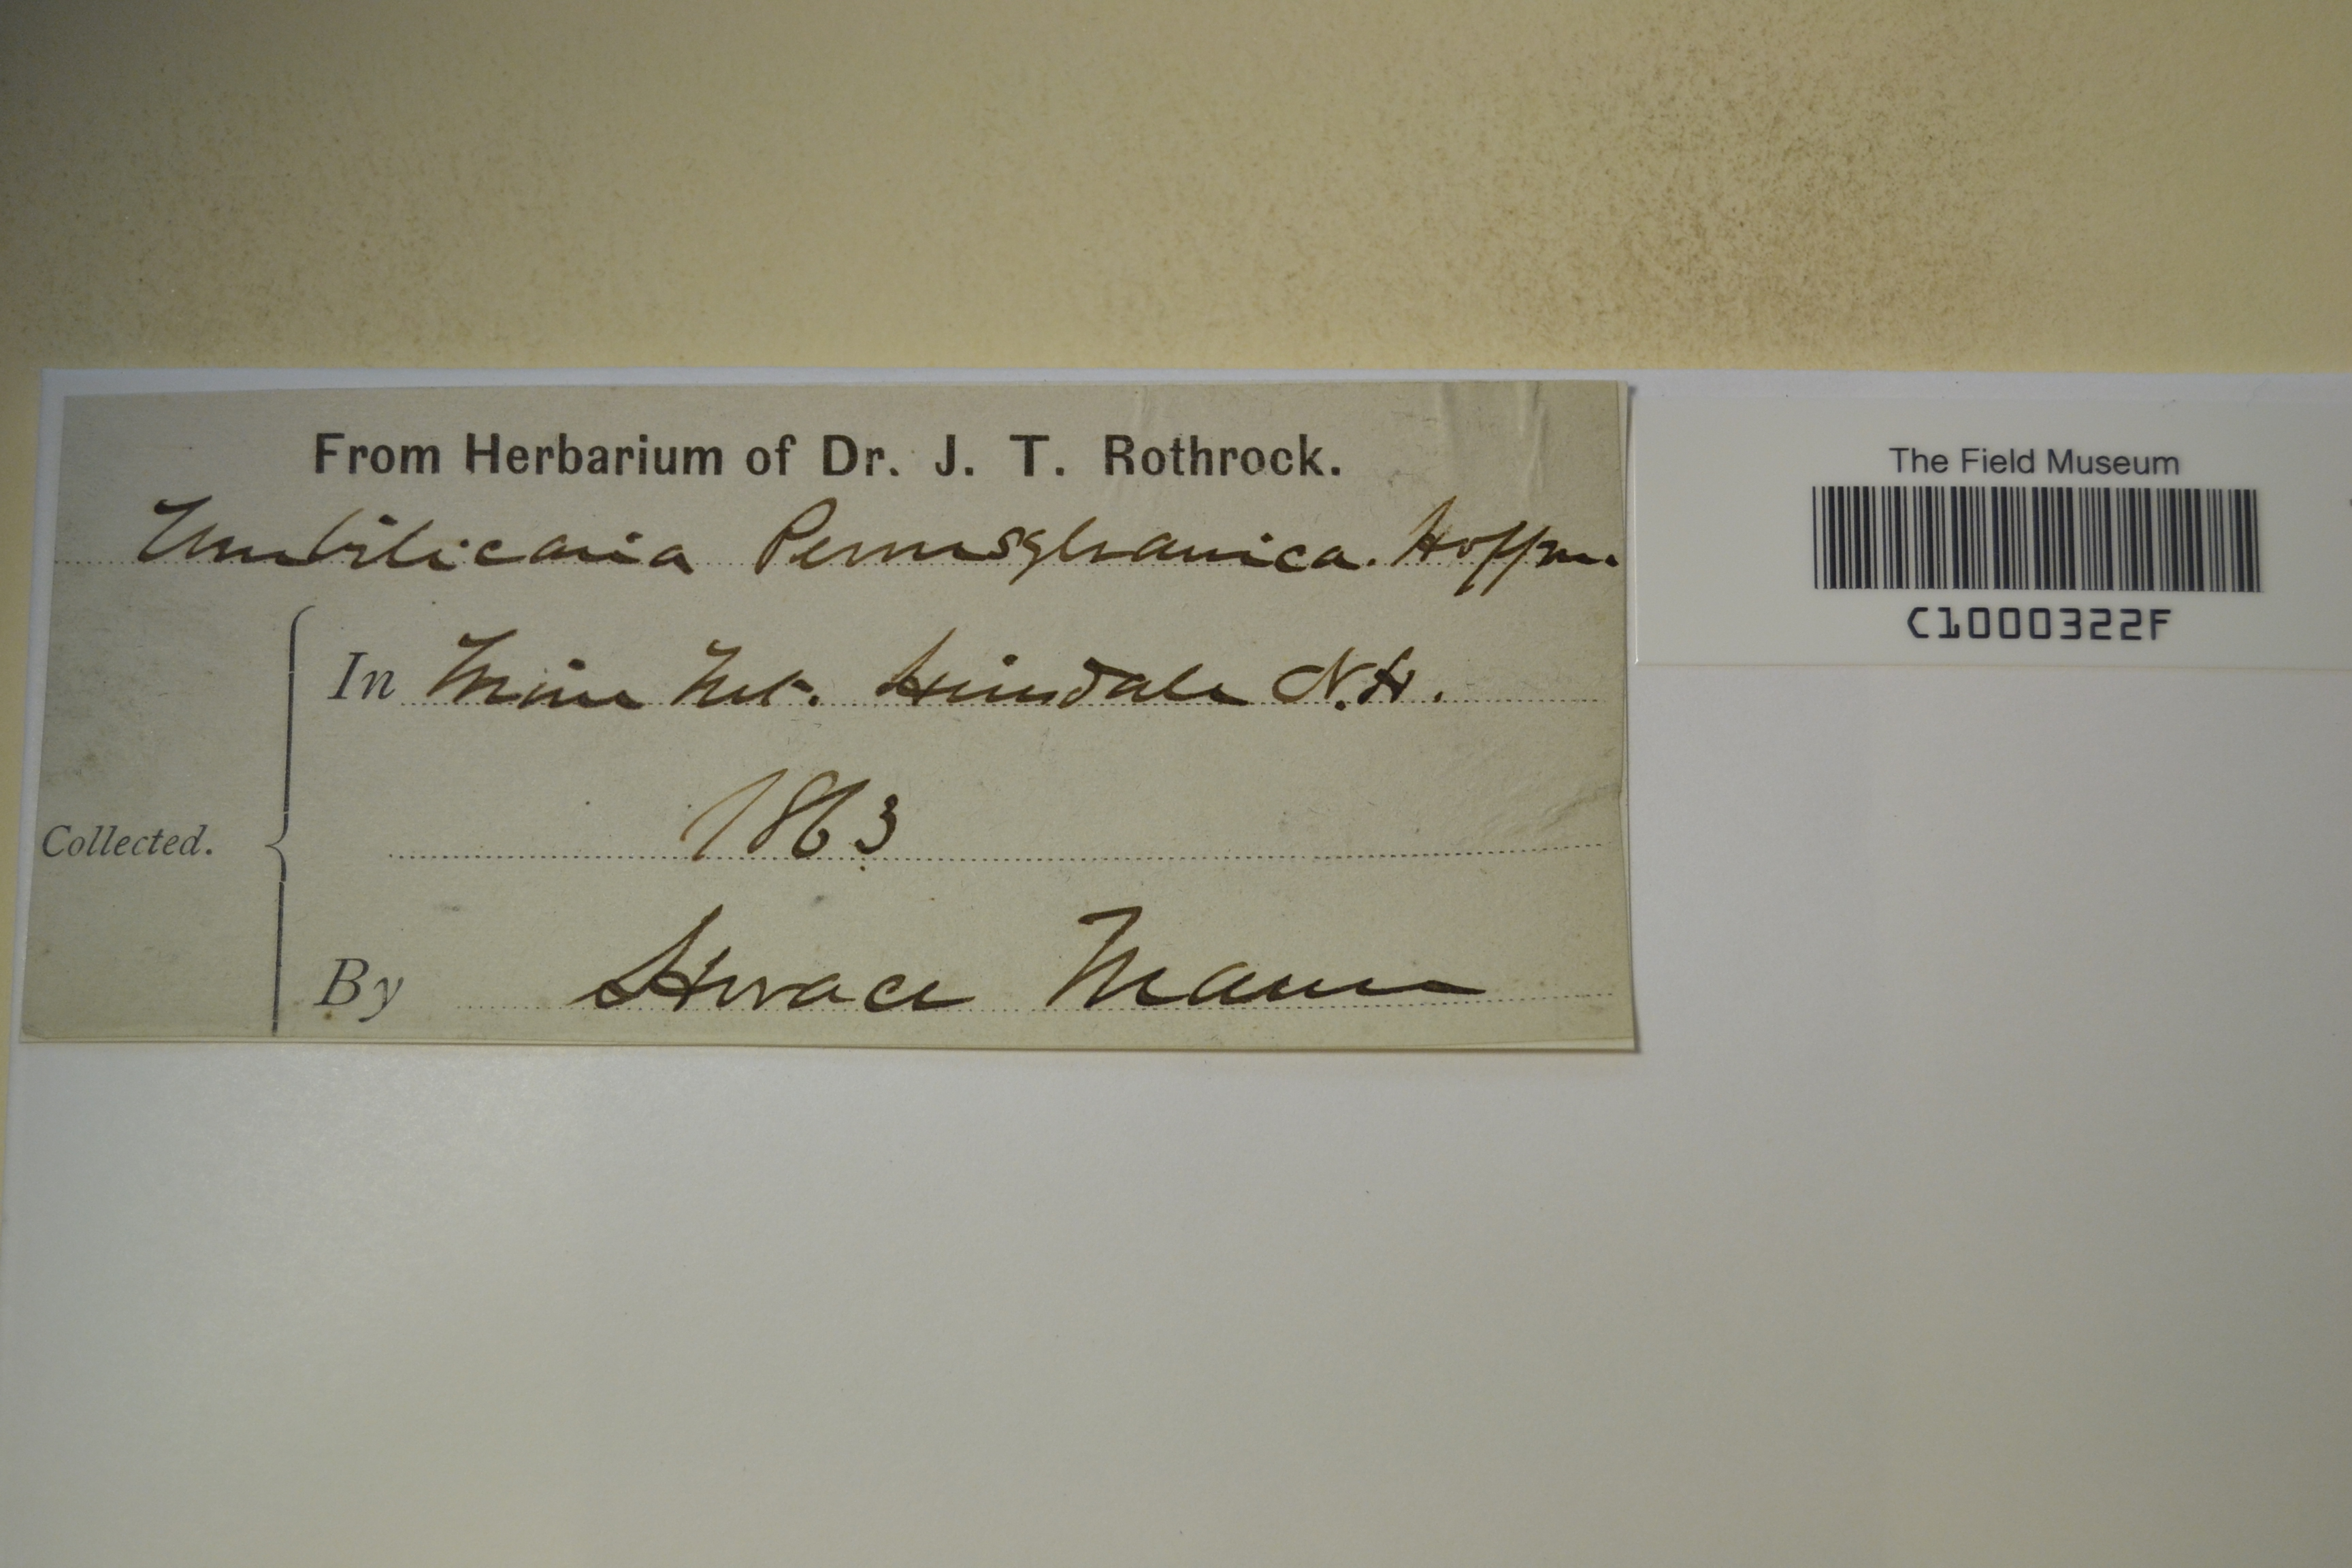 From Herbarium of Dr. J. T. Rothrock.
Umbilicaria Pennsylvanica. Hoffm.
In Mine Mt. Hinsdale N.H.
1863
Collected.
By Horace Mann
The Field Museum
C1000322F